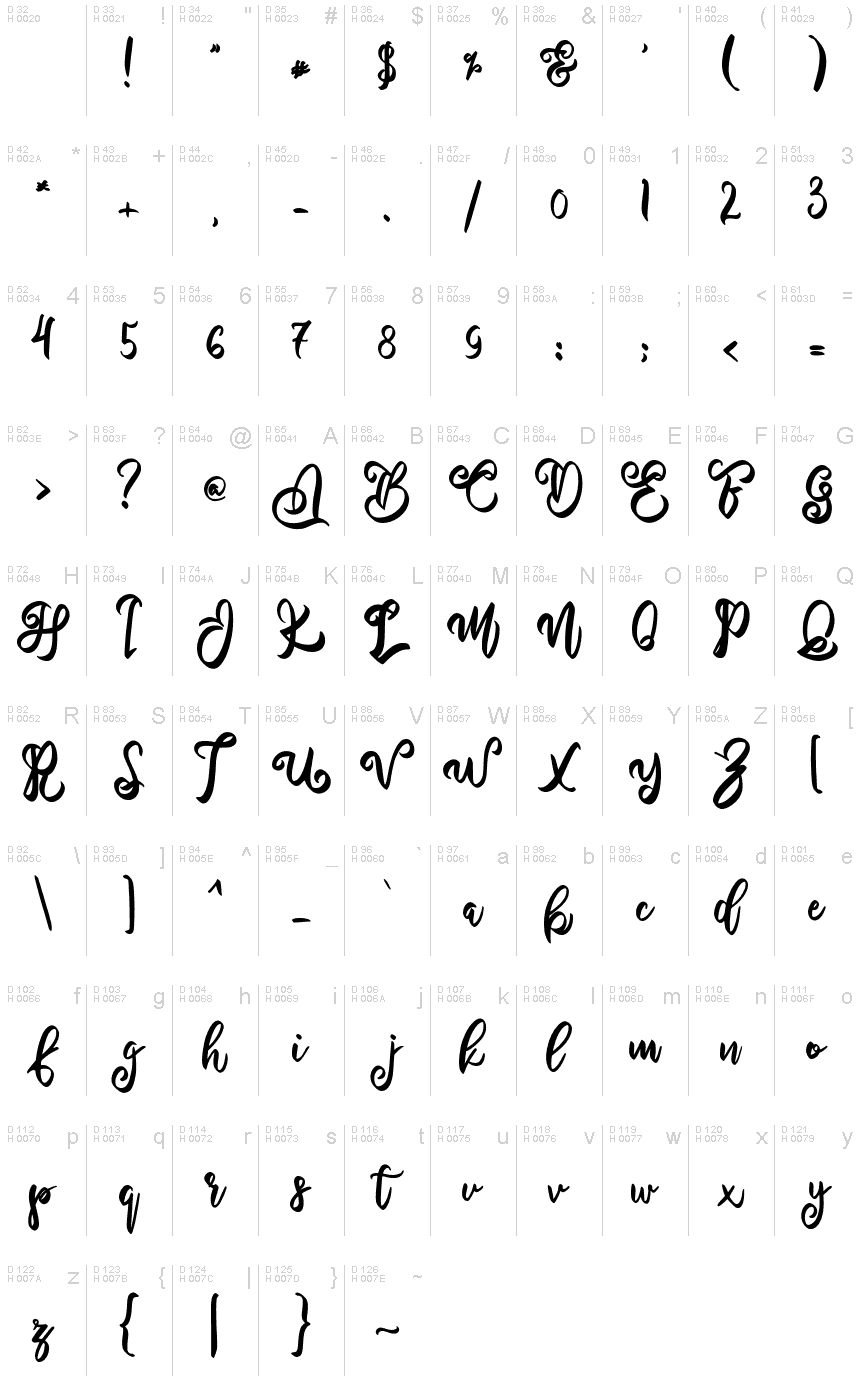 D 32 H 0020 D 33 H 0021 ! D 34 H 0022 " D 35 H 0023 # D 36 H 0024 $ D 37 H 0025 % D 38 H 0026 & D 39 H 0027 ' D 40 H 0028 ( D 41 H 0029 )
! " # $ % & ' ( )
D 42 H 002A * D 43 H 002B + D 44 H 002C , D 45 H 002D - D 46 H 002E . D 47 H 002F / D 48 H 0030 0 D 49 H 0031 1 D 50 H 0032 2 D 51 H 0033 3
* + , - . / 0 1 2 3
D 52 H 0034 4 D 53 H 0035 5 D 54 H 0036 6 D 55 H 0037 7 D 56 H 0038 8 D 57 H 0039 9 D 58 H 003A : D 59 H 003B ; D 60 H 003C < D 61 H 003D =
4 5 6 7 8 9 : ; < =
D 62 H 003E > D 63 H 003F ? D 64 H 0040 @ D 65 H 0041 A D 66 H 0042 B D 67 H 0043 C D 68 H 0044 D D 69 H 0045 E D 70 H 0046 F D 71 H 0047 G
> ? @ A B C D E F G
D 72 H 0048 H D 73 H 0049 I D 74 H 004A J D 75 H 004B K D 76 H 004C L D 77 H 004D M D 78 H 004E N D 79 H 004F O D 80 H 0050 P D 81 H 0051 Q
H I J K L M N O P Q
D 82 H 0052 R D 83 H 0053 S D 84 H 0054 T D 85 H 0055 U D 86 H 0056 V D 87 H 0057 W D 88 H 0058 X D 89 H 0059 Y D 90 H 005A Z D 91 H 005B [
R S T U V W X Y Z [
D 92 H 005C \ D 93 H 005D ] D 94 H 005E ^ D 95 H 005F _ D 96 H 0060 ` D 97 H 0061 a D 98 H 0062 b D 99 H 0063 c D 100 H 0064 d D 101 H 0065 e
\ ] ^ _ ` a b c d e
D 102 H 0066 f D 103 H 0067 g D 104 H 0068 h D 105 H 0069 i D 106 H 006A j D 107 H 006B k D 108 H 006C l D 109 H 006D m D 110 H 006E n D 111 H 006F o
f g h i j k l m n o
D 112 H 0070 p D 113 H 0071 q D 114 H 0072 r D 115 H 0073 s D 116 H 0074 t D 117 H 0075 u D 118 H 0076 v D 119 H 0077 w D 120 H 0078 x D 121 H 0079 y
p q r s t u v w x y
D 122 H 007A z D 123 H 007B { D 124 H 007C | D 125 H 007D } D 126 H 007E ~
z { | } ~